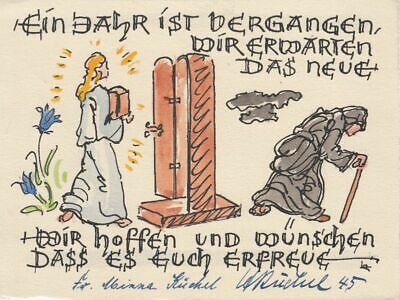 EIN JAHR IST VERGANGEN,
WIR ERWARTEN
DAS NEUE
WIR HOFFEN UND WÜNSCHEN
DASS ES EUCH ERFREUE
Fr. Minna Küchel 45